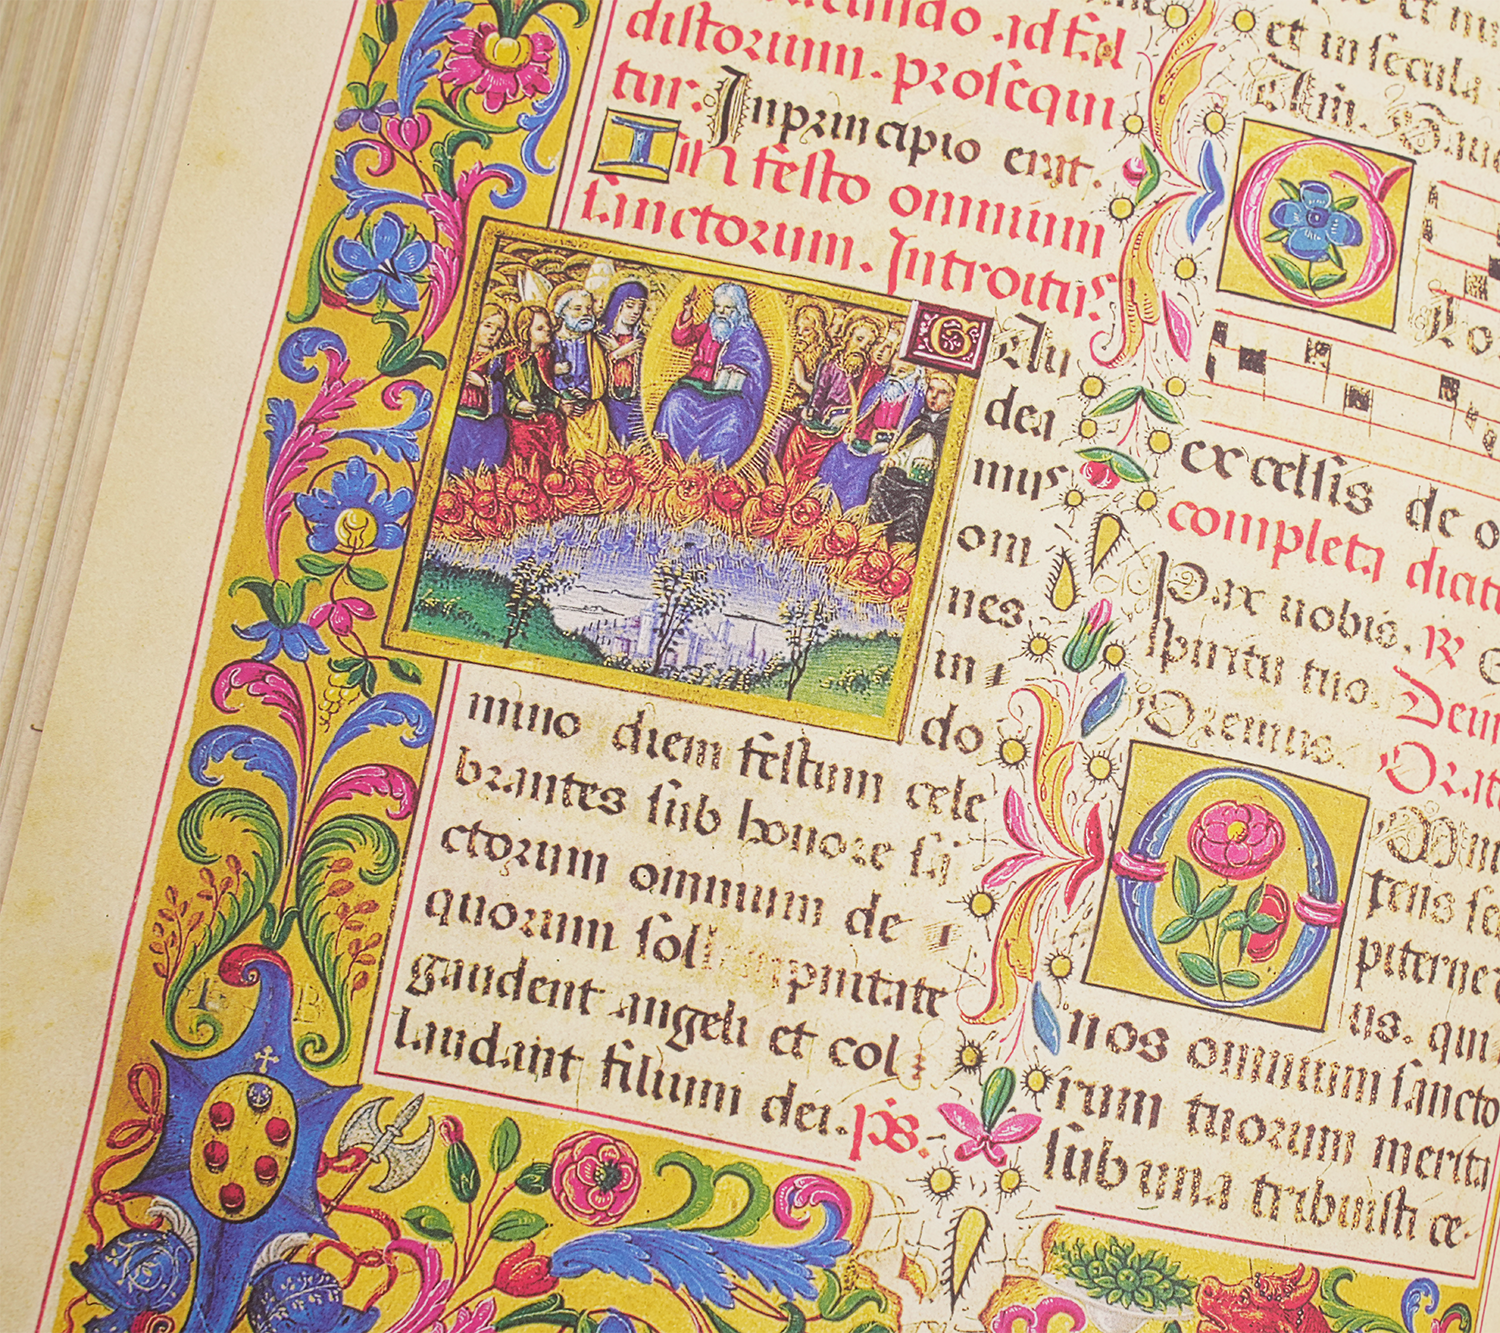 distorum. prosequi
tur: Inprincipio erat.
In festo omnium
sanctorum. Introitus
GAu
dea
mus
om
nes
in
do
mino diem festum cele
brantes sub honore sa
ctorum omnium de
quorum sol pnitate
gaudent angeli et col
laudant filium dei. ps.
et in secula
excelsis de o
completa dicit
Pax vobis. R
spiritu tuo. Dein
Oremus. Orat
O Omni
tens se
piterne
us. qui
nos omnium sancto
rum tuorum merita
sub una tribuisti ce